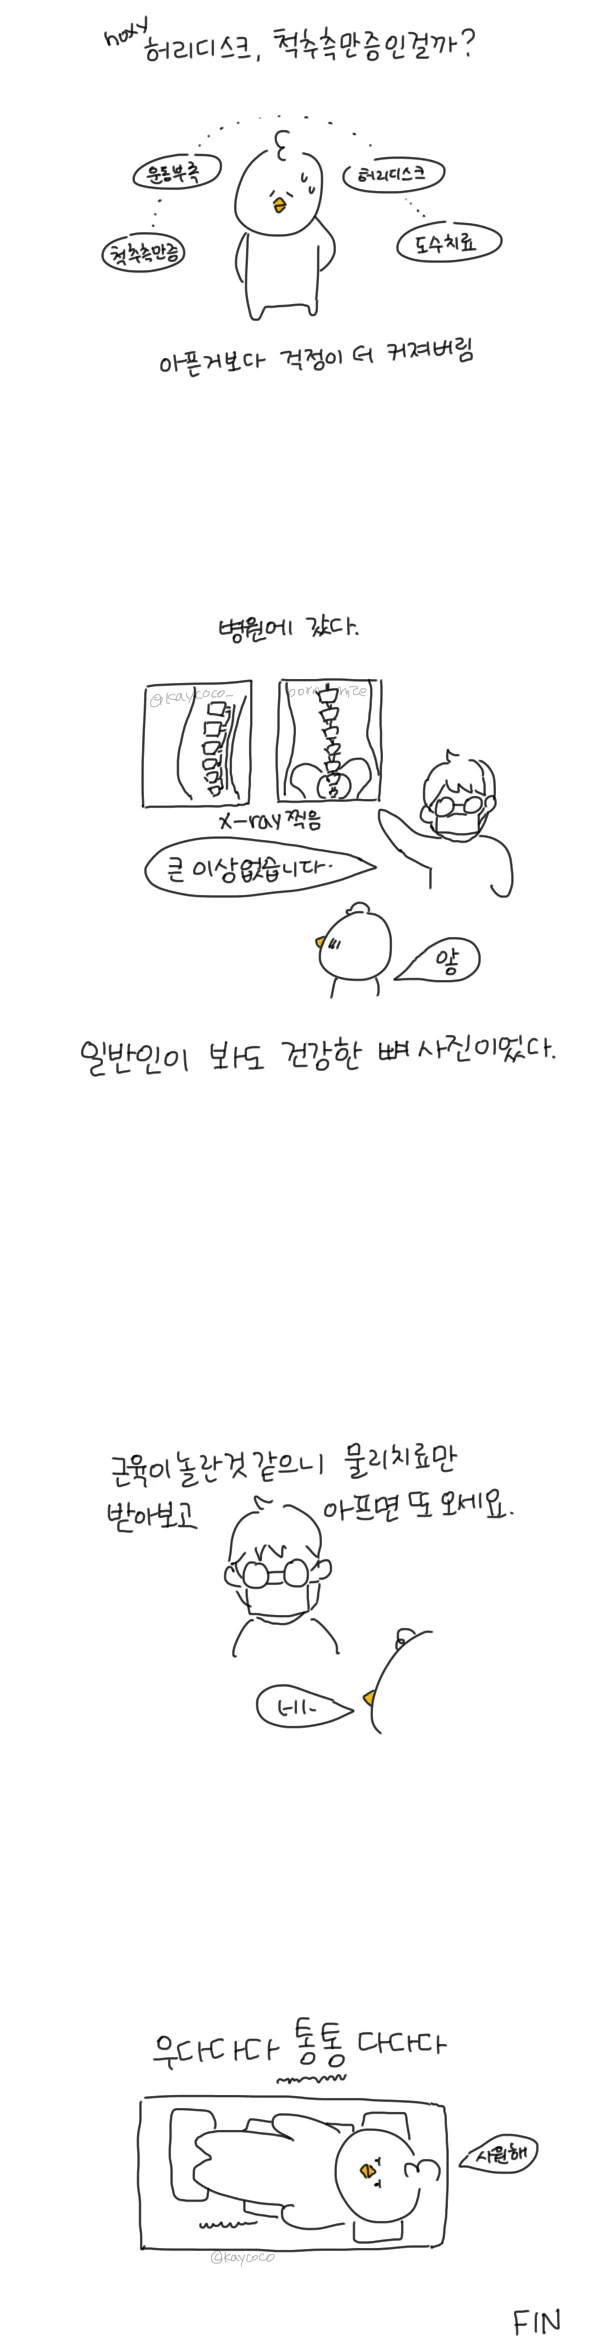 noxy
허리디스크, 척추측만증인걸까?
운동부족
허리디스크
척추측만증
도수치료
아픈거보다 걱정이 더 커져버림
병원에 갔다.
@kaycoco_
x-ray 찍음
큰 이상없습니다.
앟
일반인이 봐도 건강한 뼈 사진이었다.
근육이 놀란것 같으니 물리치료만
받아보고 아프면 또 오세요.
네.
우다다다 통통 다다다
시원해
@kaycoco
FIN